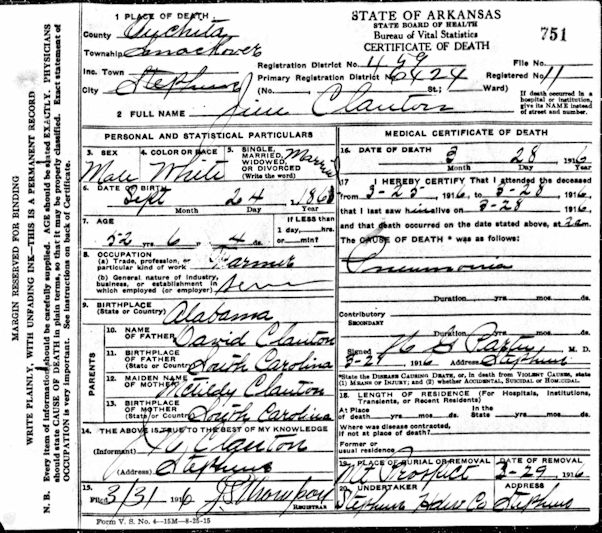 STATE OF ARKANSAS
STATE BOARD OF HEALTH
Bureau of Vital Statistics
CERTIFICATE OF DEATH
751
1 PLACE OF DEATH
County Ouchita
Township Smackover
Inc. Town
City Stephens
Registration District No. 499 File No.
Primary Registration District No. 6424 Registered No. 11
(No. St.; Ward)
If death occurred in a hospital or institution, give its NAME instead of street and number.
2 FULL NAME Jim Clanton
PERSONAL AND STATISTICAL PARTICULARS
3. SEX Male
4. COLOR OR RACE White
5. SINGLE, MARRIED, WIDOWED, OR DIVORCED (Write the word) Married
6. DATE OF BIRTH Sept 24, 1863
Month Day Year
7. AGE 52 yrs. 6 mos. 4 ds.
If LESS than 1 day, hrs. or min?
8. OCCUPATION
(a) Trade, profession, or particular kind of work Farmer
(b) General nature of industry, business, or establishment in which employed (or employer)
9. BIRTHPLACE
(State or Country) Alabama
PARENTS
10. NAME OF FATHER David Clanton
11. BIRTHPLACE OF FATHER
(State or Country) South Carolina
12. MAIDEN NAME OF MOTHER Clanton
13. BIRTHPLACE OF MOTHER
(State or Country) South Carolina
14. THE ABOVE IS TRUE TO THE BEST OF MY KNOWLEDGE
(Informant) Clanton
(Address) Stephens
15.
Filed 3/31 1916 J S Thompson
REGISTRAR
Form V. S. No. 4—15M—8-25-15
MEDICAL CERTIFICATE OF DEATH
16. DATE OF DEATH 3 28 1916
Month Day Year
17 I HEREBY CERTIFY That I attended the deceased
from 3-23 1916, to 3-28 1916
that I last saw him alive on 3-28 1916
and that death occurred on the date stated above, at 2 a m.
The CAUSE OF DEATH* was as follows:
Pneumonia
Duration yrs. mos. ds.
Contributory
SECONDARY
Duration yrs. mos. ds.
Signed M. D.
3-29 1916 Address Stephens
*State the DISEASE CAUSING DEATH, or, in death from VIOLENT CAUSES, state (1) MEANS OF INJURY; and (2) whether ACCIDENTAL, SUICIDAL or HOMICIDAL.
18. LENGTH OF RESIDENCE (For Hospitals, Institutions, Transients, or Recent Residents)
At Place of death yrs. mos. ds. In the State yrs. mos. ds.
Where was disease contracted, if not at place of death?
Former or usual residence
19. PLACE OF BURIAL OR REMOVAL Mt Prospect
DATE OF REMOVAL 3-29, 1916
20. UNDERTAKER Stephens Hdw Co
ADDRESS Stephens
MARGIN RESERVED FOR BINDING
WRITE PLAINLY, WITH UNFADING INK—THIS IS A PERMANENT RECORD
N. B. Every item of information should be carefully supplied. AGE should be stated EXACTLY. PHYSICIANS
should state CAUSE OF DEATH in plain terms, so that it may be properly classified. Exact statement of
OCCUPATION is very important. See instructions on back of Certificate.